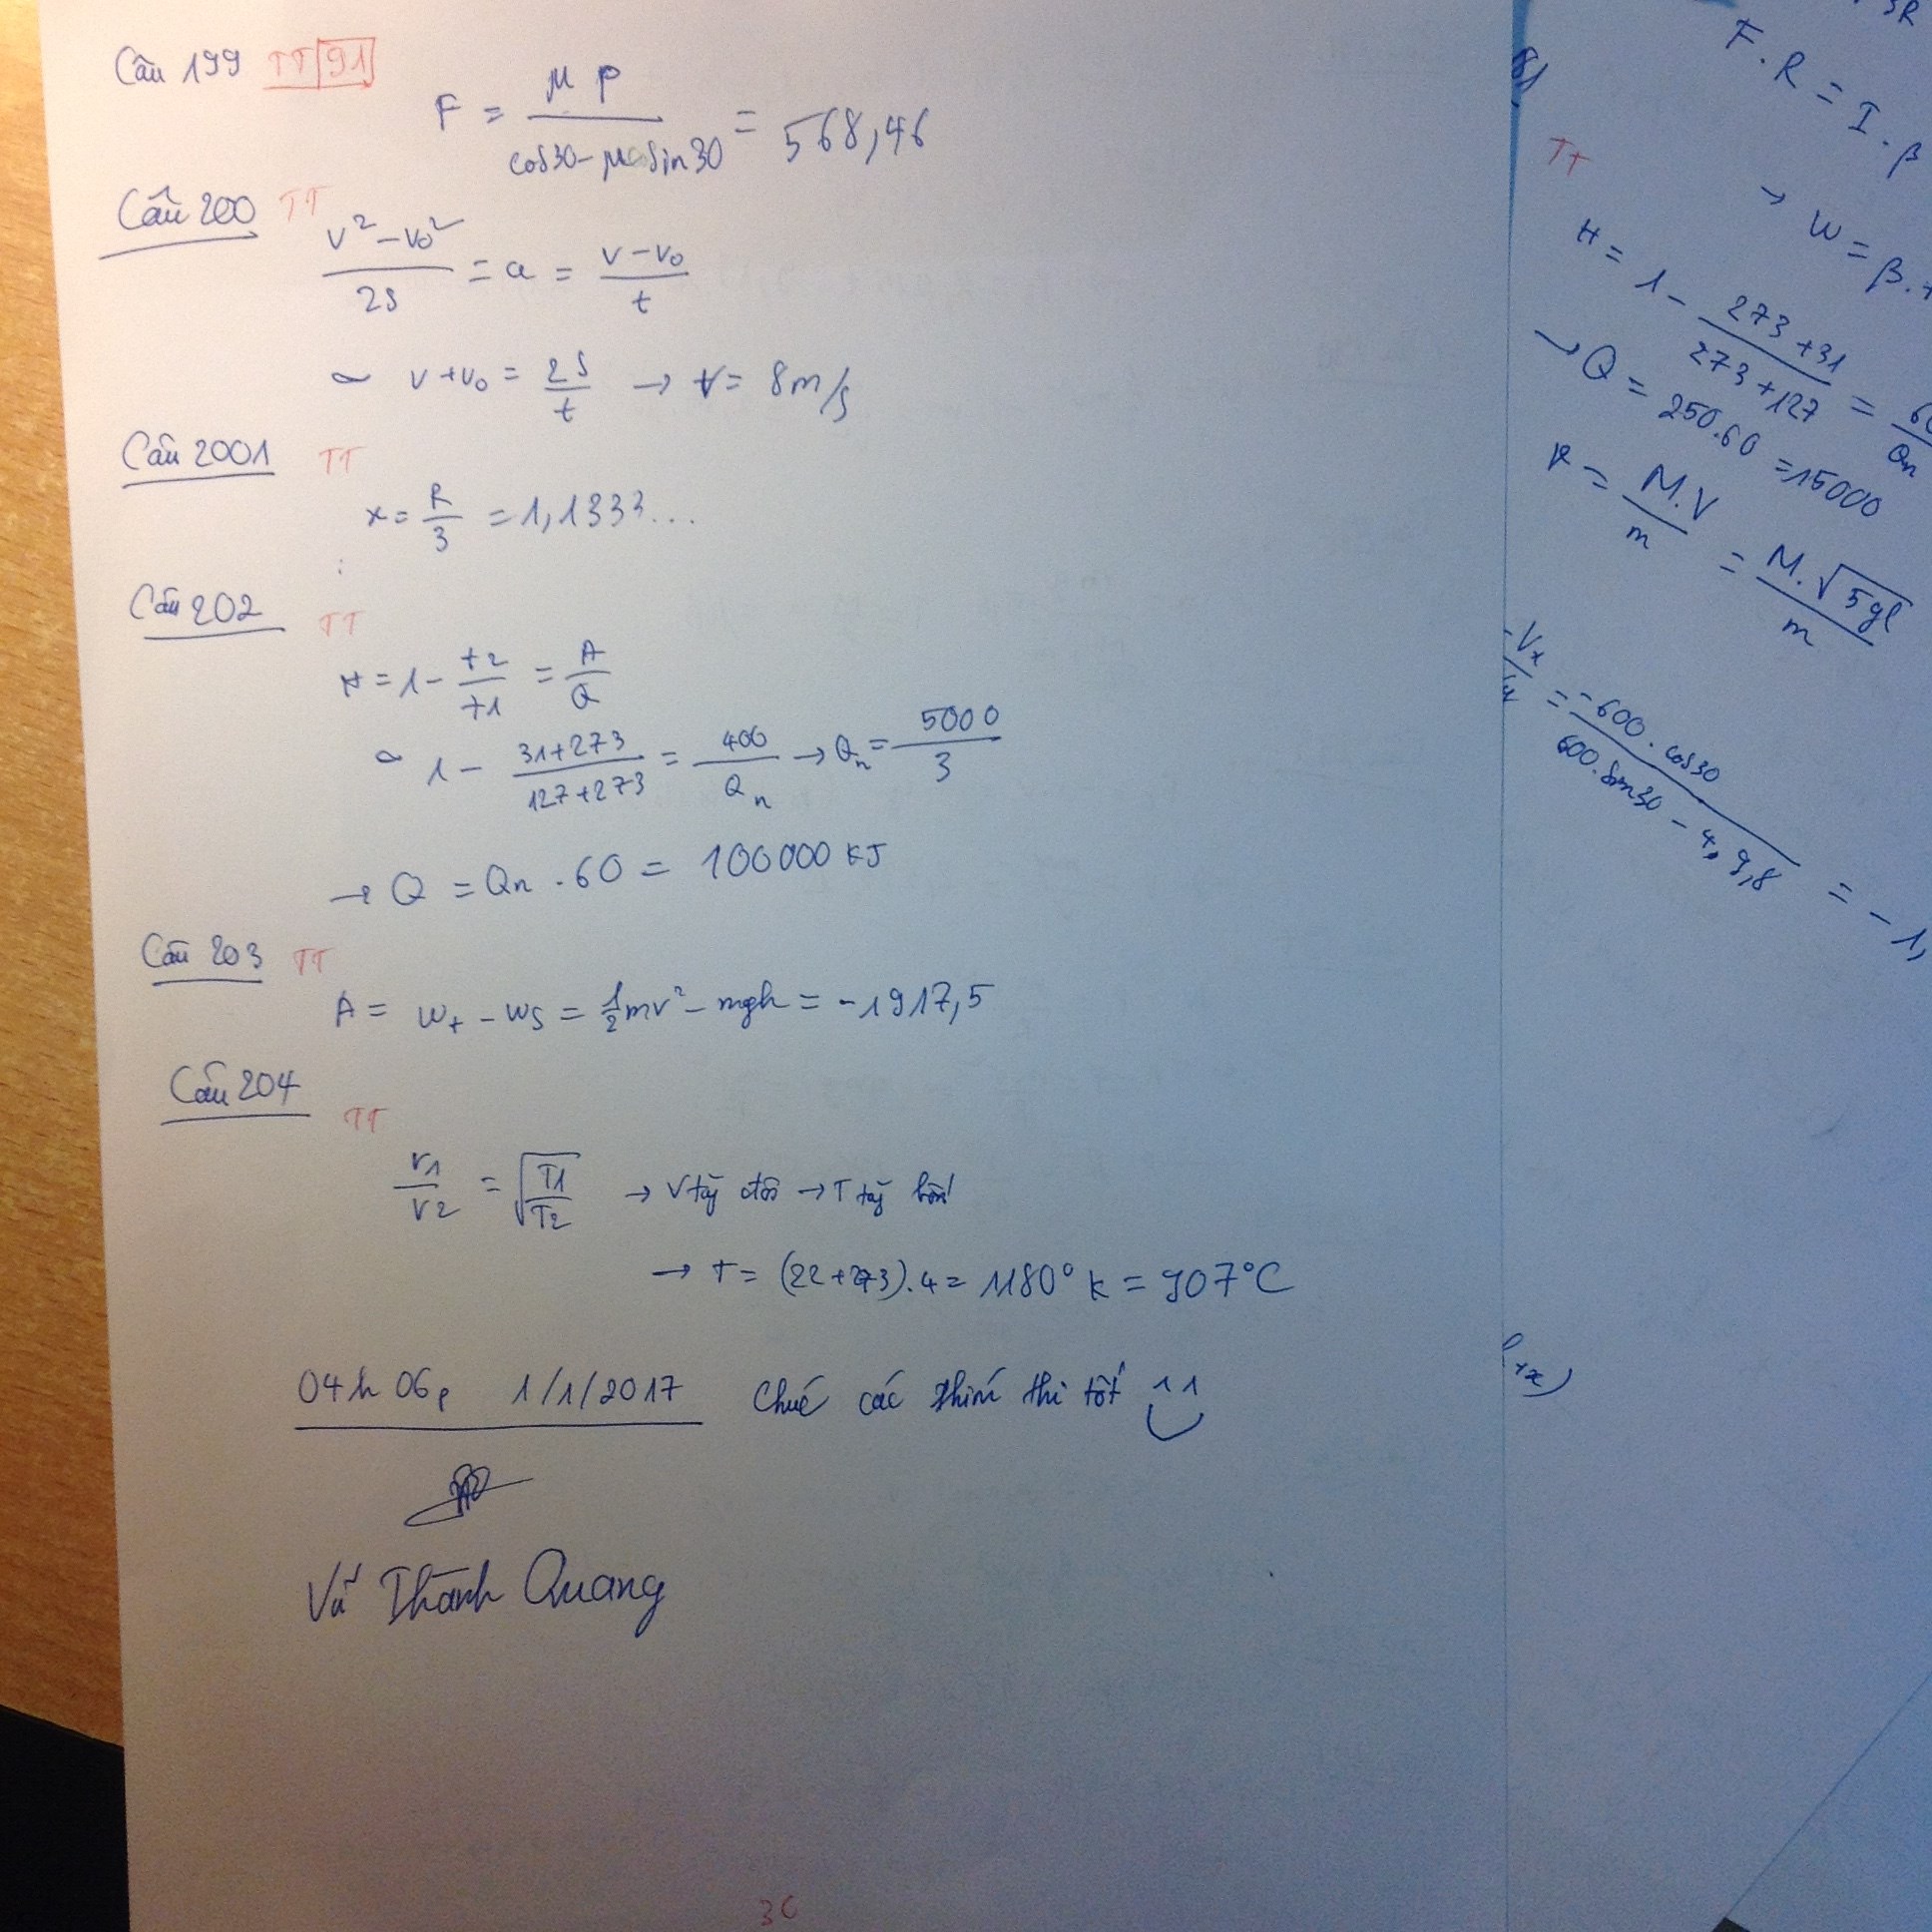 Câu 199 TT 91
F = μ P / (cos30 - μ sin30) = 568,46
Câu 200 TT
(v² - v₀²) / 2S = a = (v - v₀) / t
∽ v + v₀ = 2S / t → v = 8m/s
Câu 2001 TT
x = R / 3 = 1,1333...
Câu 202 TT
H = 1 - T2 / T1 = A / Q
∽ 1 - (31+273) / (127+273) = 400 / Qn → Qn = 5000 / 3
→ Q = Qn . 60 = 100000 KJ
Câu 203 TT
A = Wt - Ws = ½mv² - mgh = -1917,5
Câu 204 TT
v1 / v2 = √(T1 / T2) → v tăg đôi → T tăg bốn
→ T = (22+273).4 = 1180°K = 907°C
04h 06p 1/1/2017 Chúc các thím thi tốt ^^
Vũ Thành Quang
3R
F.R = I.β
8)
TT
→ W = β.t
H = 1 - (273+31) / (273+127) = 60 / Qn
→ Q = 250.60 = 15000
= M.V / m = M.√5gl / m
-Vx = -600.cos30 / (600.sin30 - 4.9,8) = -1,
+x)